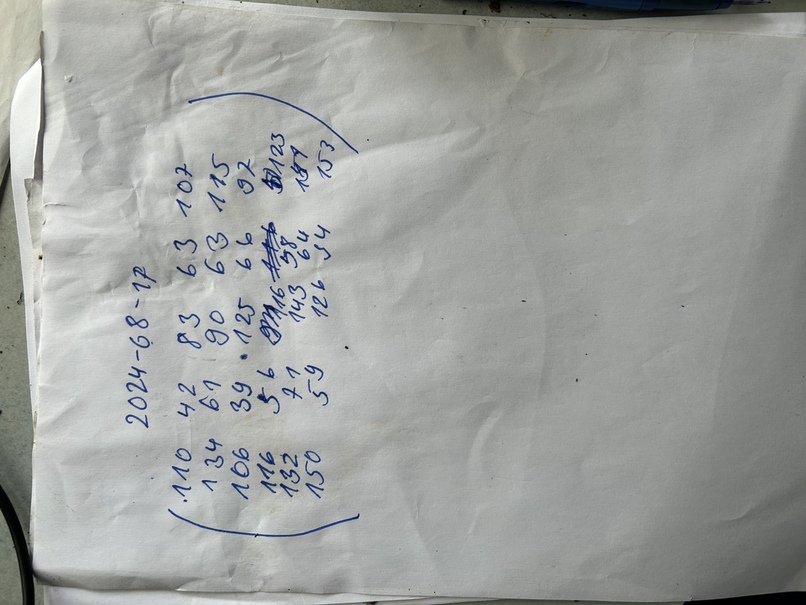 2024-68-17
110 42 83 63 107
134 61 90 63 115
106 39 125 66 97
116 56 116 58 123
132 71 143 64
150 59 126 54 153